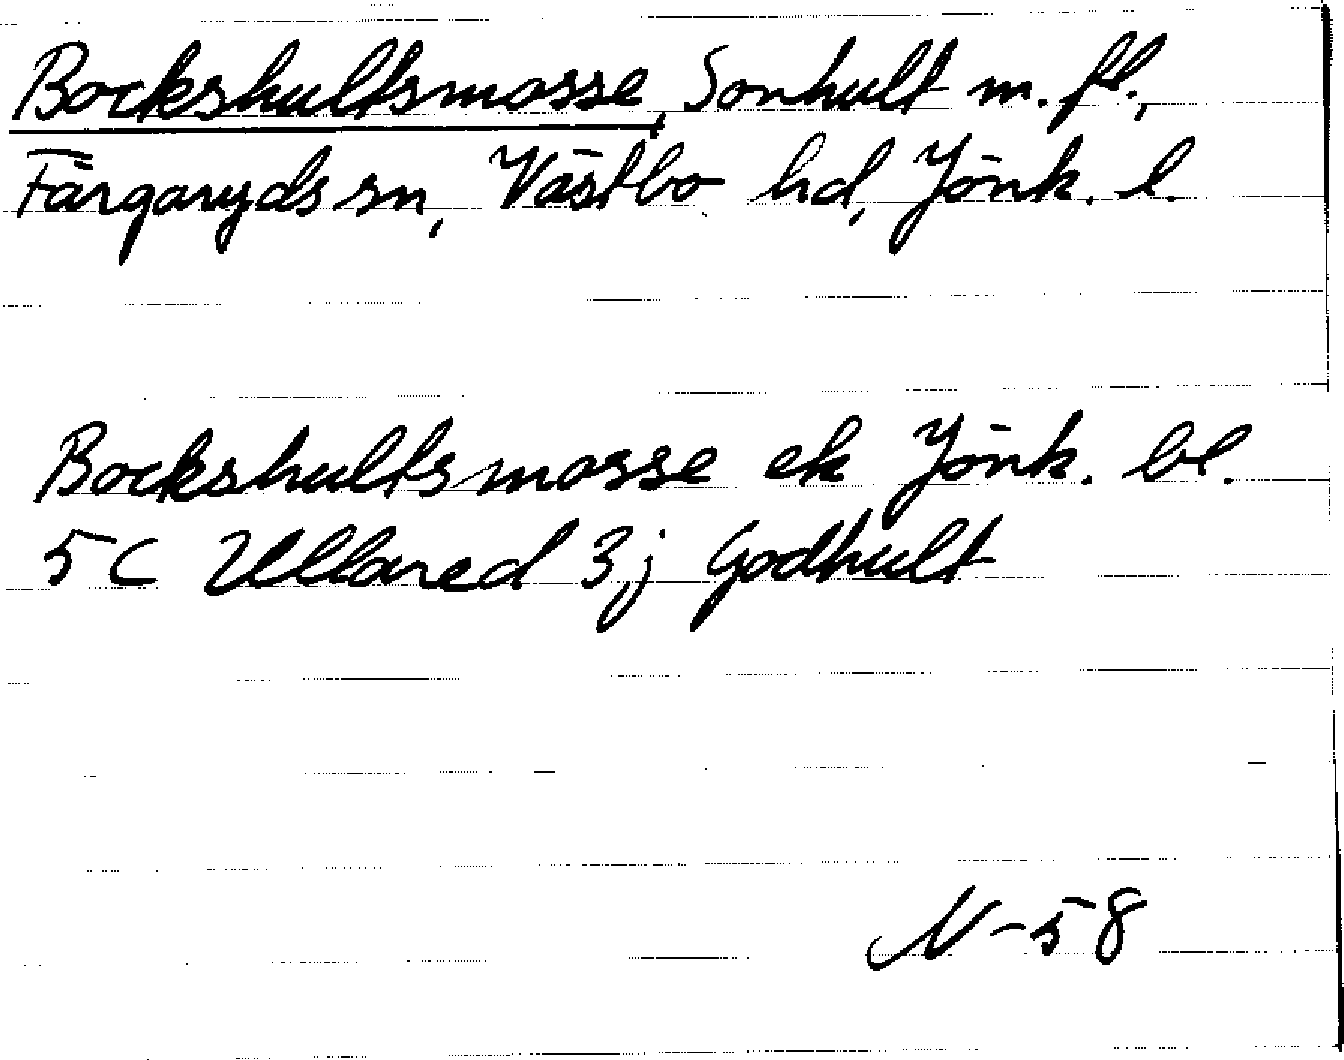 Bockshultsmosse, Sonhult m. fl.,
Färgaryds sn, Västbo hd, Jönk. l.
Bockshultsmosse ek Jönk. bl.
5C Ullared 3j Godhult
N-58